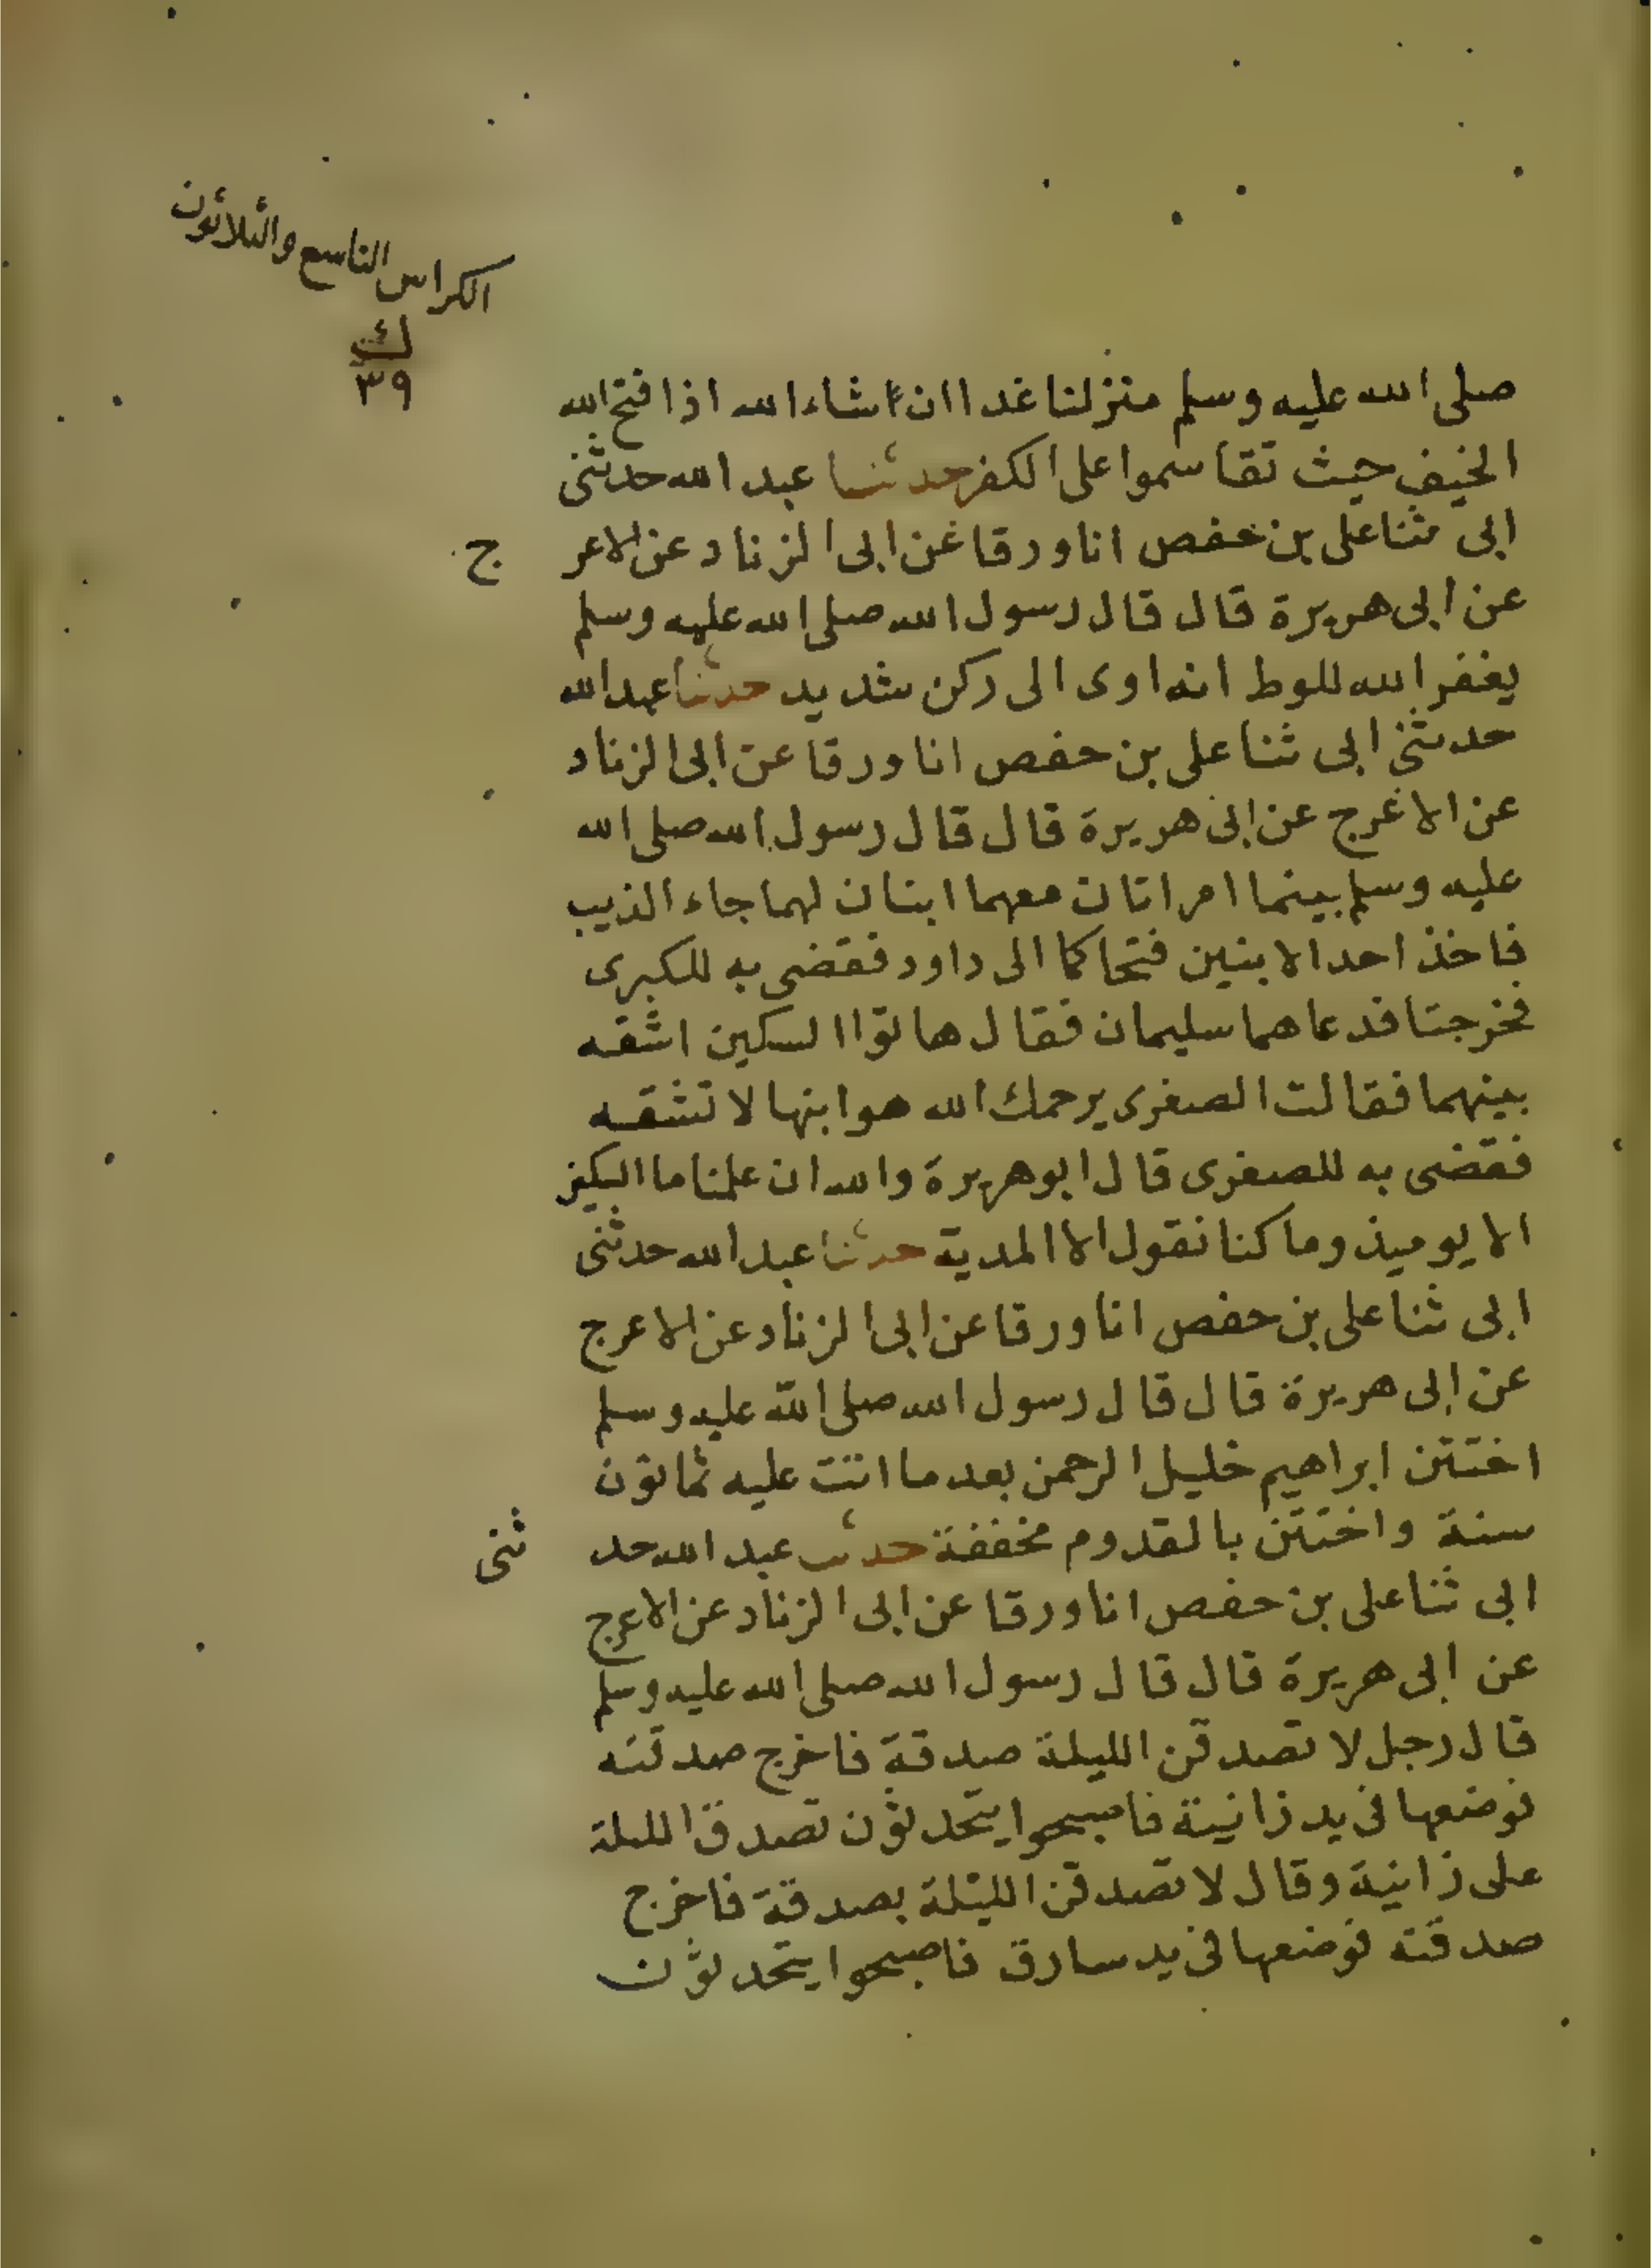 الكراس التاسع والثلاثون
ك
٣٩
صلى الله عليه وسلم منزلنا غدا ان شاء الله اذا فتح الله
الخيف حيث تقاسموا على الكفر حدثنا عبد الله حدثنى
ابى ثنا على بن حفص انا ورقا عن ابى الزناد عن الاعر ج
عن ابى هريرة قال قال رسول الله صلى الله عليه وسلم
يغفر الله للوط انه اوى الى ركن شديد حدثنا عبد الله
حدثنى ابى ثنا على بن حفص انا ورقا عن ابى الزناد
عن الاعرج عن ابى هريرة قال قال رسول الله صلى الله
عليه وسلم بينما امراتان معهما ابنان لهما جاء الذيب
فاخذ احد الابنين فتحاكما الى داود فقضى به للكبرى
فخرجتا فدعاهما سليمان فقال هاتوا السكين اشقه
بينهما فقالت الصغرى يرحمك الله هو ابنها لا تشقه
فقضى به للصغرى قال ابو هريرة والله ان علمنا ما السكين
الا يوميذ وما كنا نقول الا المدية حدثنا عبد الله حدثنى
ابى ثنا على بن حفص انا ورقا عن ابى الزناد عن الاعرج
عن ابى هريرة قال قال رسول الله صلى الله عليه وسلم
اختتن ابراهيم خليل الرحمن بعد ما اتت عليه ثمانون
سنة واختتن بالقدوم مخففة حدثنا عبد الله حد ثنى
ابى ثنا على بن حفص انا ورقا عن ابى الزناد عن الاعرج
عن ابى هريرة قال قال رسول الله صلى الله عليه وسلم
قال رجل لا تصدقن الليلة صدقة فاخرج صدقته
فوضعها فى يد زانية فاصبحوا يتحدثون تصدق الليلة
على زانية وقال لا تصدقن الليلة بصدقة فاخرج
صدقته فوضعها فى يد سارق فاصبحوا يتحدثون